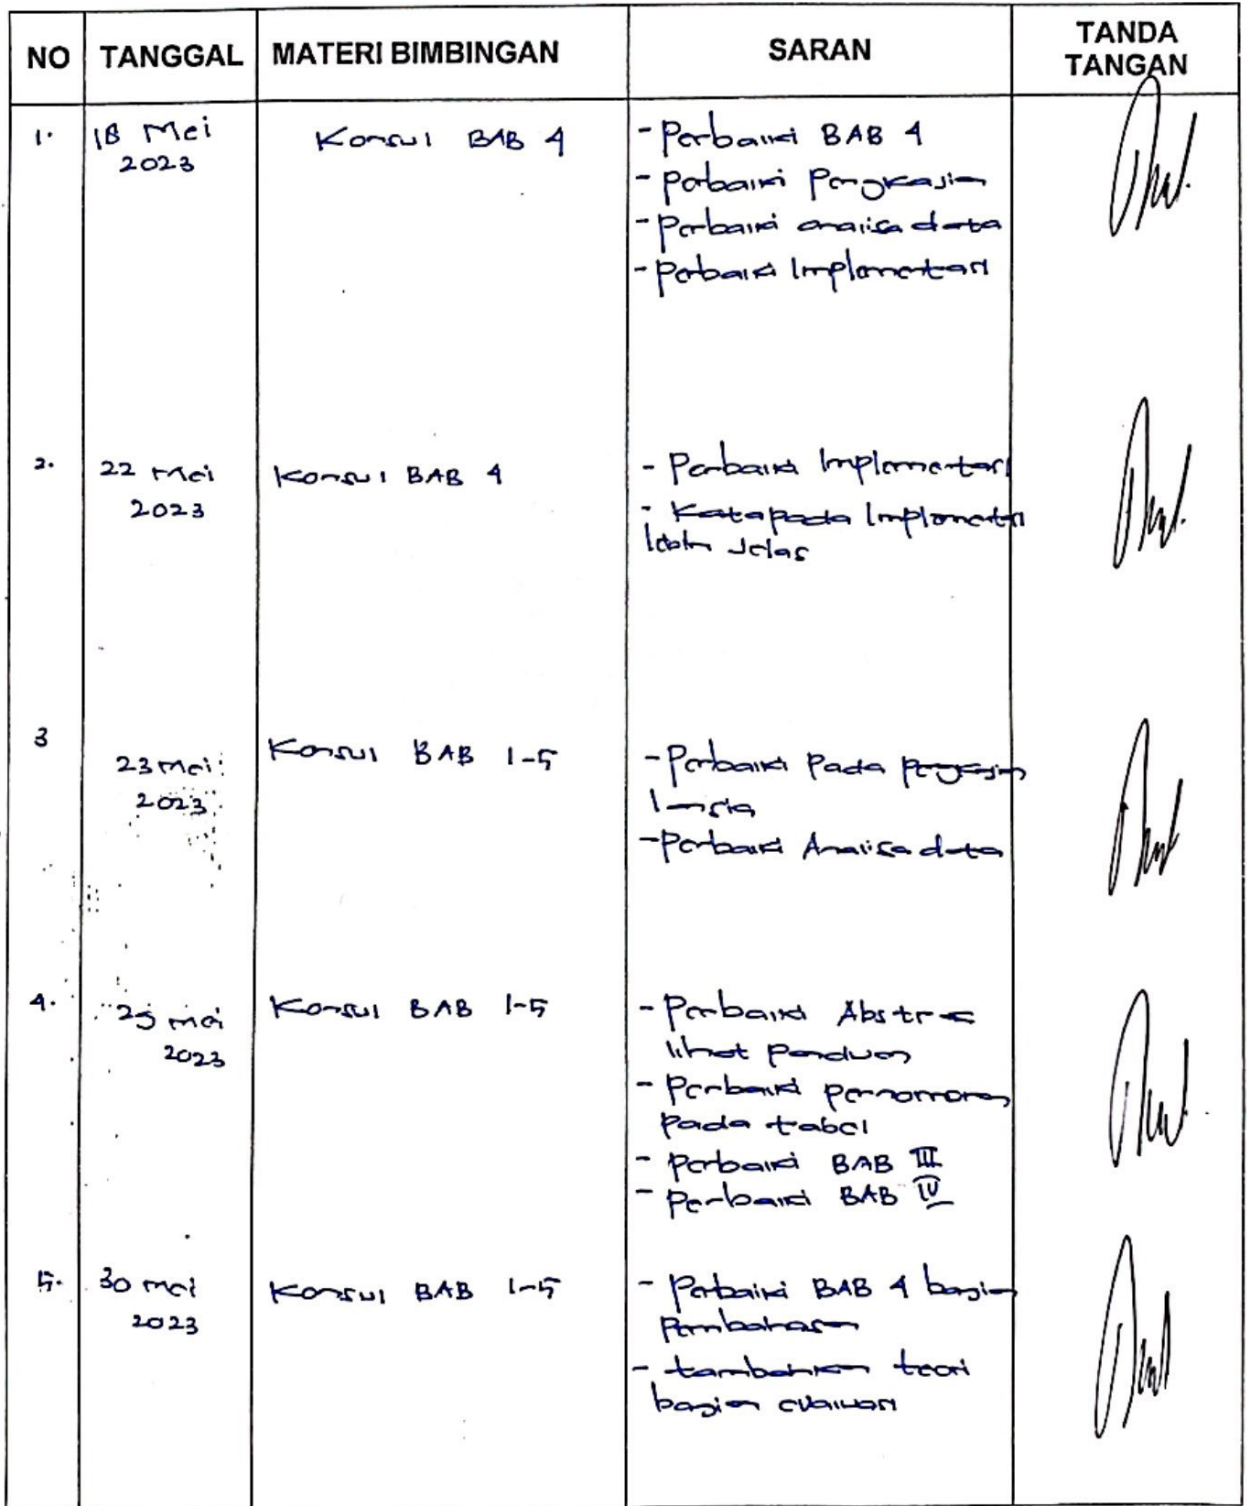 NO TANGGAL MATERI BIMBINGAN SARAN TANDA TANGAN
1. 18 Mei 2023 Konsul BAB 4 - Perbaiki BAB 4
- perbaiki Pengkajian
- perbaiki analisa data
- perbaiki Implementasi
2. 22 Mei 2023 Konsul BAB 4 - Perbaiki Implementasi
- Kata pada Implementasi
lebih Jelas
3 23 Mei 2023 Konsul BAB 1-5 - Perbaiki Pada pengkajian
lansia
- Perbaiki Analisa data
4. 25 mei 2023 Konsul BAB 1-5 - Perbaiki Abstrak
lihat panduan
- Perbaiki penomoran
pada tabel
- perbaiki BAB III
- perbaiki BAB IV
5. 30 mei 2023 Konsul BAB 1-5 - Perbaiki BAB 4 bagian
Pembahasan
- tambahkan teori
bagian evaluasi